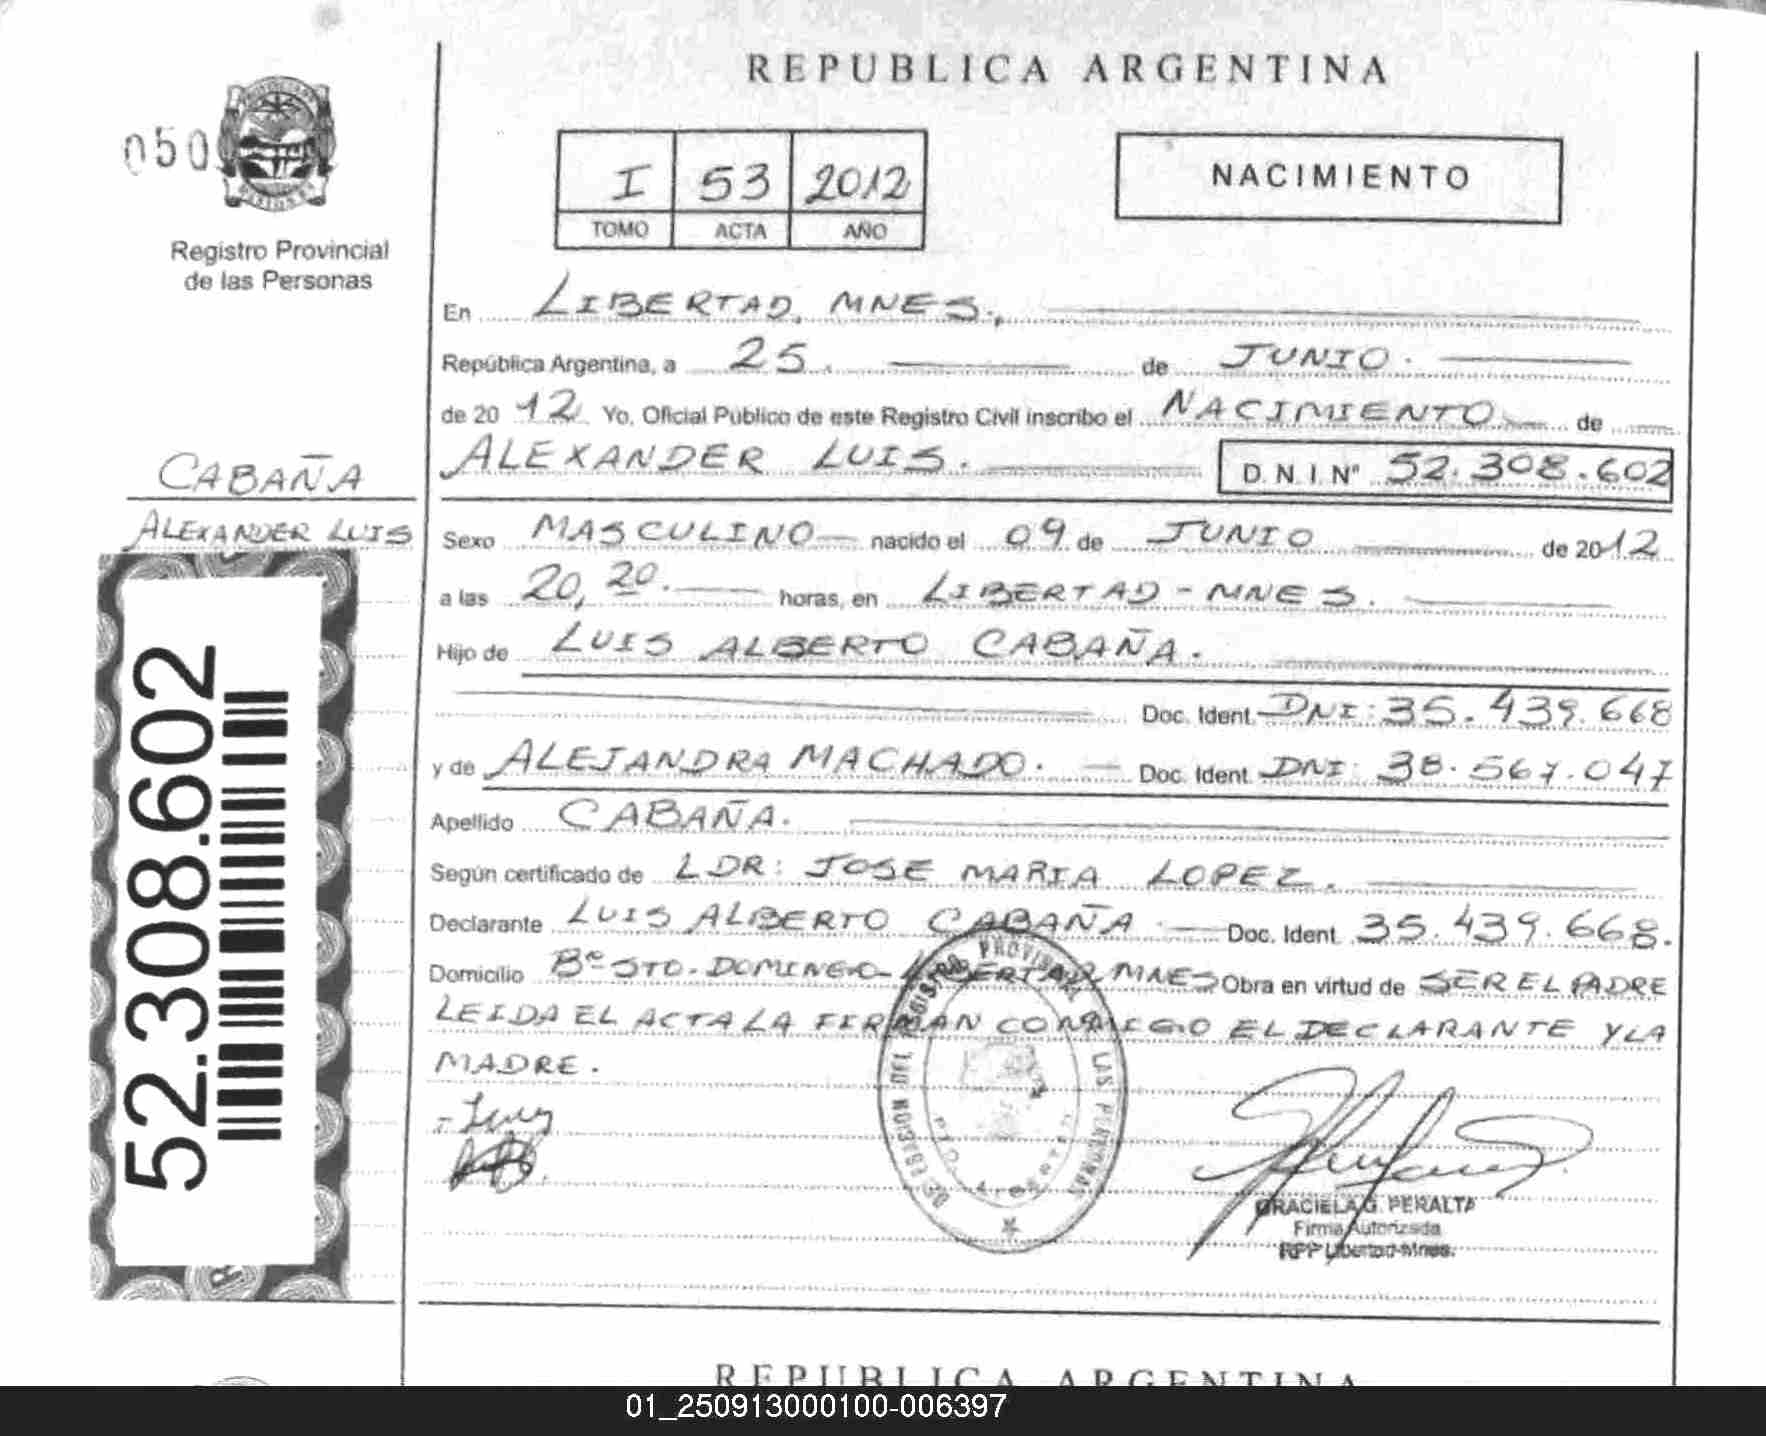 REPUBLICA ARGENTINA
050
I 53 2012
TOMO ACTA AÑO
NACIMIENTO
Registro Provincial
de las Personas
En LIBERTAD, MNES.,
República Argentina, a 25. de JUNIO.
de 2012 Yo, Oficial Público de este Registro Civil inscribo el NACIMIENTO de
ALEXANDER LUIS. D.N.I.Nº 52.308.602
CABAÑA
ALEXANDER LUIS
Sexo MASCULINO nacido el 09 de JUNIO de 2012
a las 20,20. horas, en LIBERTAD - MNES.
Hijo de LUIS ALBERTO CABAÑA.
Doc. Ident. DNI: 35.439.668
y de ALEJANDRA MACHADO. Doc. Ident. DNI: 38.567.047
Apellido CABAÑA.
Según certificado de LDR: JOSE MARIA LOPEZ.
Declarante LUIS ALBERTO CABAÑA Doc. Ident. 35.439.668.
Domicilio Bº STO. DOMINGO - LIBERTAD MNES Obra en virtud de SER EL PADRE
LEIDA EL ACTA LA FIRMAN CONMIGO EL DECLARANTE Y LA
MADRE.
52.308.602
GRACIELA G. PERALTA
Firma Autorizada
RPP Libertad-Mnes.
REPUBLICA ARGENTINA
01_250913000100-006397